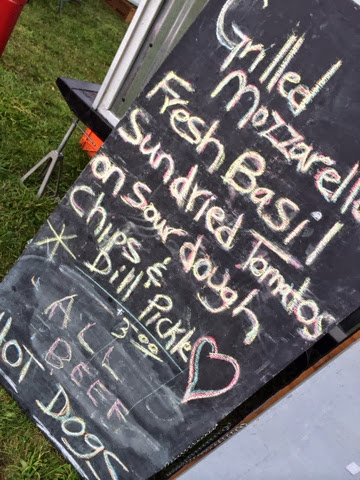 Grilled
Mozzarella
Fresh Basil
Sundried Tomatos
on sour dough
Chips &
* Dill Pickle
3.00
ALL
BEEF
HOT DOGS